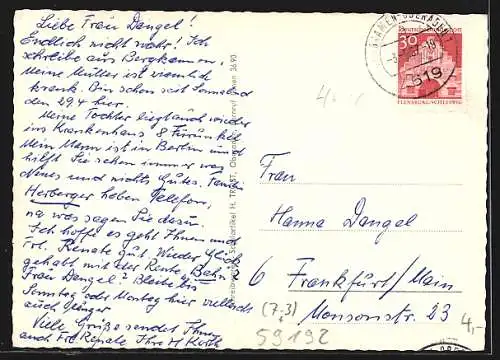 Liebe Frau Dangel!
Endlich nicht wahr! Ich
schreibe aus Bergkamen.
Meine Mutter ist ziemlich
krank. Bin schon seit Sonnabend
den 29.4 hier.
Meine Tochter liegt auch wieder
ins Krankenhaus 8 Furünkel
Mein Mann ist in Berlin und
hilft Sie schon immer was
Neues und nichts Gutes. Familie
Herberger haben Telefon,
na was sagen Sie dazu.
Ich hoffe es geht Ihnen und
Frl. Renate gut. Wieder Glück
gehabt mit der Karte, Bahn
Frau Dangel? Bleibe bis
Sonntag oder Montag hier vielleicht
auch länger
Viele Grüße sendet Ihnen
auch Frl. Renate Ihre H. Korth
H. TRÖST, 
30
519
FLENSBURG/SCHLESWIG
4,-
Frau
Hanna Dangel
6 Frankfurt/Main
Monsonstr. 23
(7,3)
59192
4,-